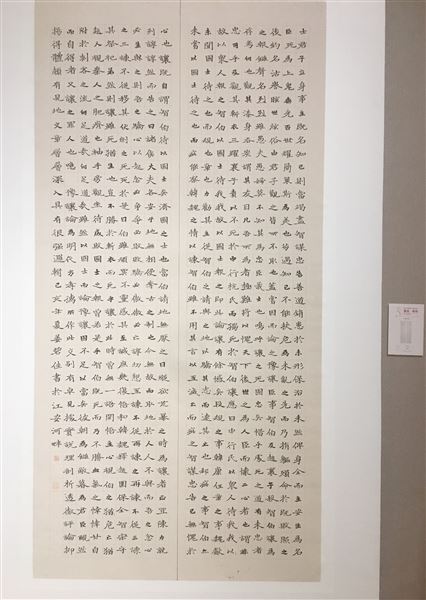 士君子立身事主既名知己則當竭盡智謀忠告善道銷患於未形保治於未然俾身全而主安生為名
臣死為上鬼垂光百世耀簡策斯為美也苟遇知己不能扶危為未亂之先而乃捐軀殞命於既敗之
後釣名沽譽眩世炫俗由君子觀之皆所不取也蓋嘗因而論之豫讓臣事智伯及趙襄子殺智伯讓為
之報讎聲名烈烈雖愚夫愚婦莫不知其為忠臣義士也嗚呼讓之死固忠矣惜乎處死之道有未忠者
存焉何也觀其漆身吞炭謂其友曰凡吾所為者極難將以愧天下後世之為人臣而懷二心者也謂非
忠可乎及觀其斬衣三躍襄子責以不死於中行氏而獨死於智伯讓應曰中行氏以眾人待我我
故以眾人報之智伯以國士待我我故以國士報之即此而論讓有餘憾矣段規之事韓康任章之事魏獻
未聞以國士待之也而規也章也力勸其主從智伯之請與之地以驕其志而速其亡也郄疵之事智伯亦
未嘗以國士待之也而疵能察韓魏之情以諫智伯雖不用其言以至滅亡而疵之智謀忠告已無愧於
心也讓既自謂智伯待以國士矣國士濟國之士也當伯請地無厭之日縱欲荒暴之時為讓者正宜陳力就
列諄諄然而告之曰諸侯大夫各安分地無相侵奪古之制也今無故而取地於人人不與而吾之忿心
必生與之則吾之驕心以起忿必爭爭必敗驕必傲傲必亡諄切懇至諫不從再諫之再諫不從三諫
之三諫不從移其伏劍之死死於是日伯雖頑冥不靈感其至誠庶幾復悟和韓魏釋趙圍保全智宗守
其祭祀若然則讓雖死猶生也豈不勝於斬衣而死乎讓於此時曾無一語開悟主心視伯之危亡猶
越人視秦人之肥瘠也袖手旁觀坐待成敗國士之報曾若是乎智伯既死而乃不勝血氣之悻悻甘自
附於刺客之流何足道哉何足道哉雖然以國士而論豫讓固不足以當矣彼朝為讎敵暮為君臣覥然
而自得者又讓之罪人也噫 豫讓論為明代方孝孺所作此文別有卓見據實說理剖析透徹評論抑
揚得體頗有見地文章層層深入具有很強邏輯己亥夏姜碧佳書於江安河畔